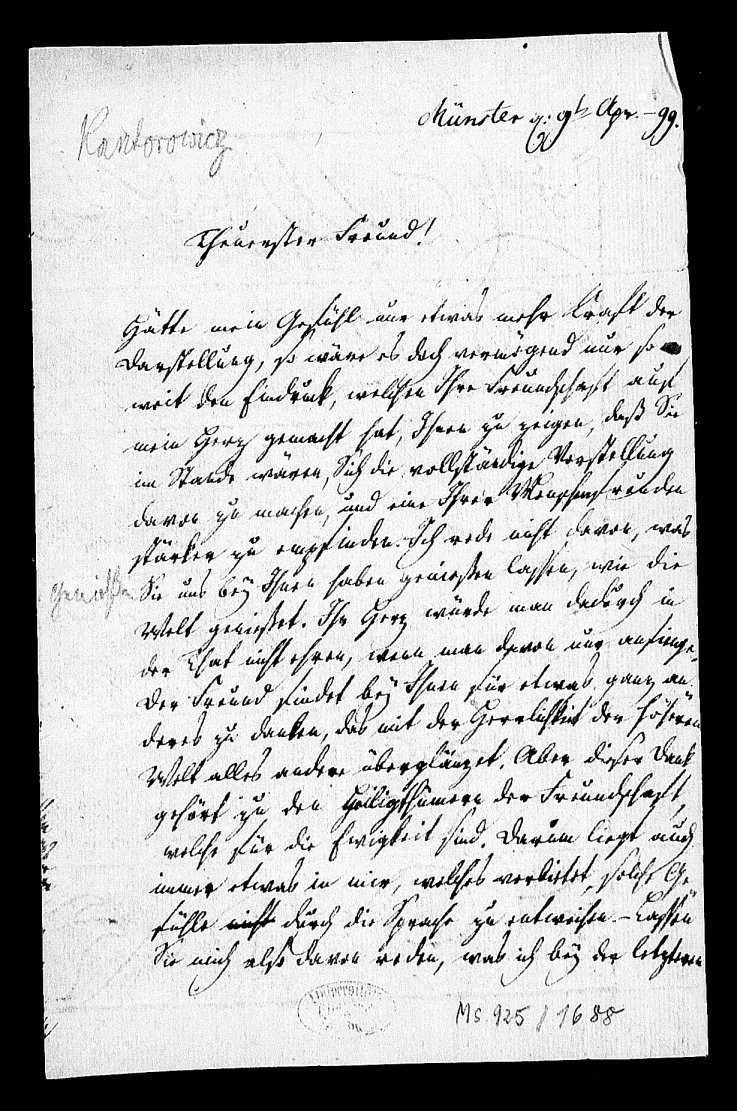 Kantorowicz
Münster d: 9t Apr. -99.
Theuerster Freund!
Hätte mein Gefühl nur etwas mehr Kraft der
Darstellung, so wäre es doch vermögend nur so
weit den Eindruck, welchen Ihre Freundschaft auf
mein Herz gemacht hat, Ihnen zu zeigen, daß Sie
im Stande wären, Sich die vollständige Vorstellung
davon zu machen, und eine Ihrer Menschenfreuden
stärker zu empfinden. Ich rede nicht davon, was
Sie uns bey Ihnen haben geniessen lassen, wie die
genießen
Welt geniesset. Ihr Herz würde man dadurch in
der That nicht ehren, wenn man davon nur anfinge.
Der Freund findet bey Ihnen für etwas ganz an
deres zu danken, das mit der Herrlichkeit der höheren
Welt alles andere überglänzet. Aber dieser Dank
gehört zu den Heiligthümern der Freundschaft,
welche für die Ewigkeit sind. Darum liegt auch
immer etwas in mir, welches verbietet, solche Ge
fühle nicht durch die Sprache zu entweihen. - Lassen
Sie mich also davon reden, was ich bey der letzteren
Ms. 925 / 1688